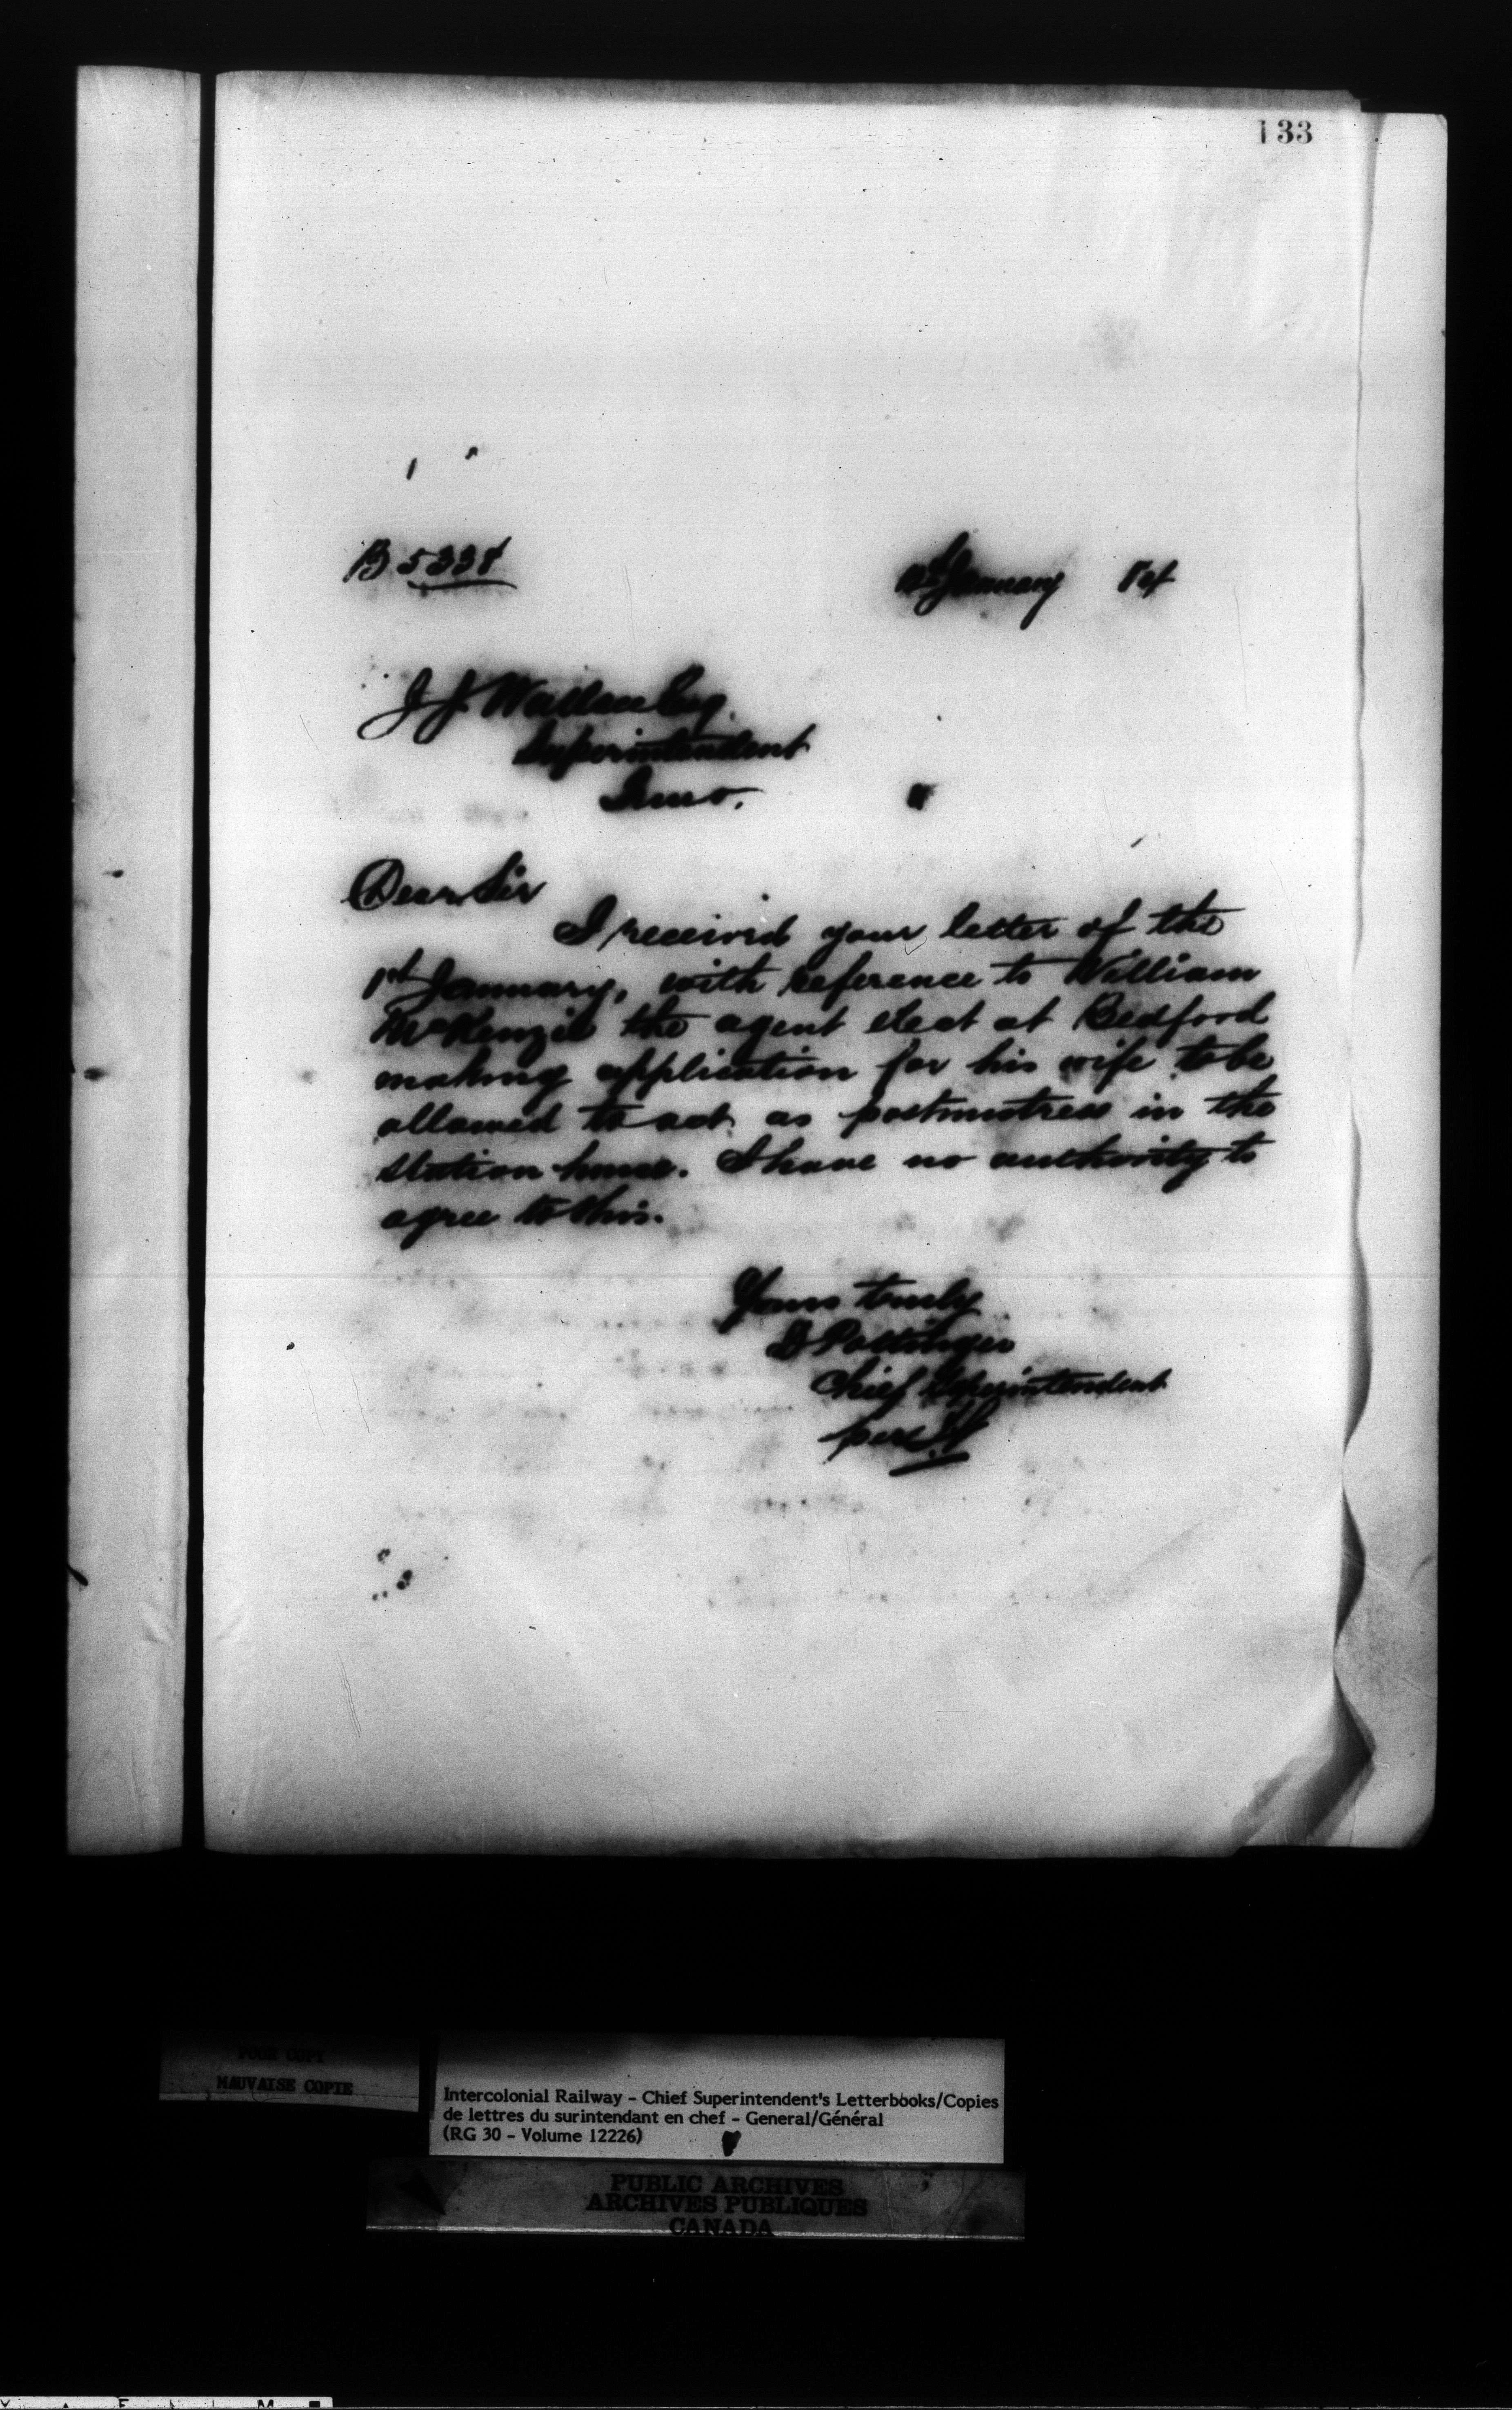 133
B 5334
January 84
J J Wallace Esq.
Superintendent
Truro.
Dear Sir
I received your letter of the
1st January, with reference to William
McKenzie the agent elect at Bedford
making application for his wife to be
allowed to act as postmistress in the
station house. I have no authority to
agree to this.
Yours truly
D Pottinger
Chief Superintendent
per
POOR COPY
MAUVAISE COPIE
Intercolonial Railway - Chief Superintendent's Letterbooks/Copies
de lettres du surintendant en chef - General/Général
(RG 30 - Volume 12226)
PUBLIC ARCHIVES
ARCHIVES PUBLIQUES
CANADA